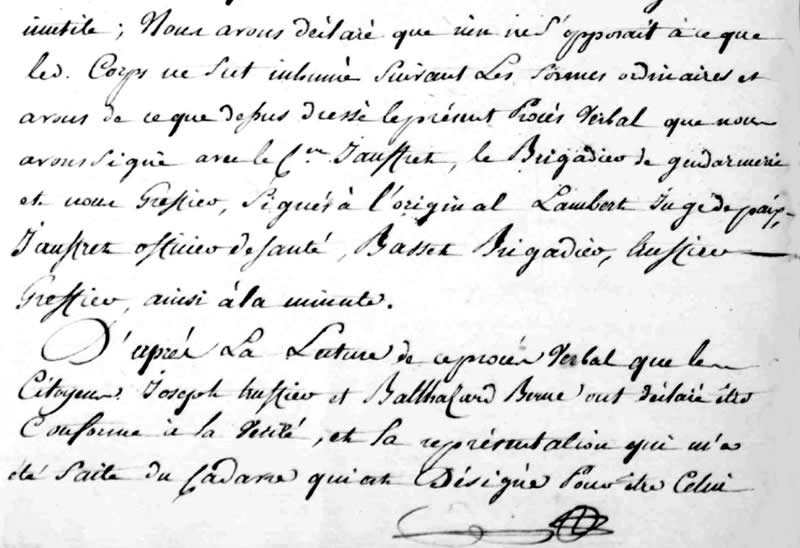 inutile ; Nous avons déclaré que rien ne s'opposait à ce que
led. Corps ne fut inhumé suivant Les formes ordinaires et
avons de ce que dessus dressé le présent Procès Verbal que nous
avons signé avec le C.en Jauffret, le Brigadier de gendarmerie
et notre Greffier, signés à l'original Lambert Juge de paix,
Jauffret officier de santé, Basset Brigadier,
Greffier, ainsi à la minute.
D'après La Lecture de ce procès Verbal que les
Citoyens Joseph et Balthasard Berne ont déclaré être
Conforme à la Vérité, et la représentation qui m'a
été faite du Cadavre qui est Désigné Pour être Celui